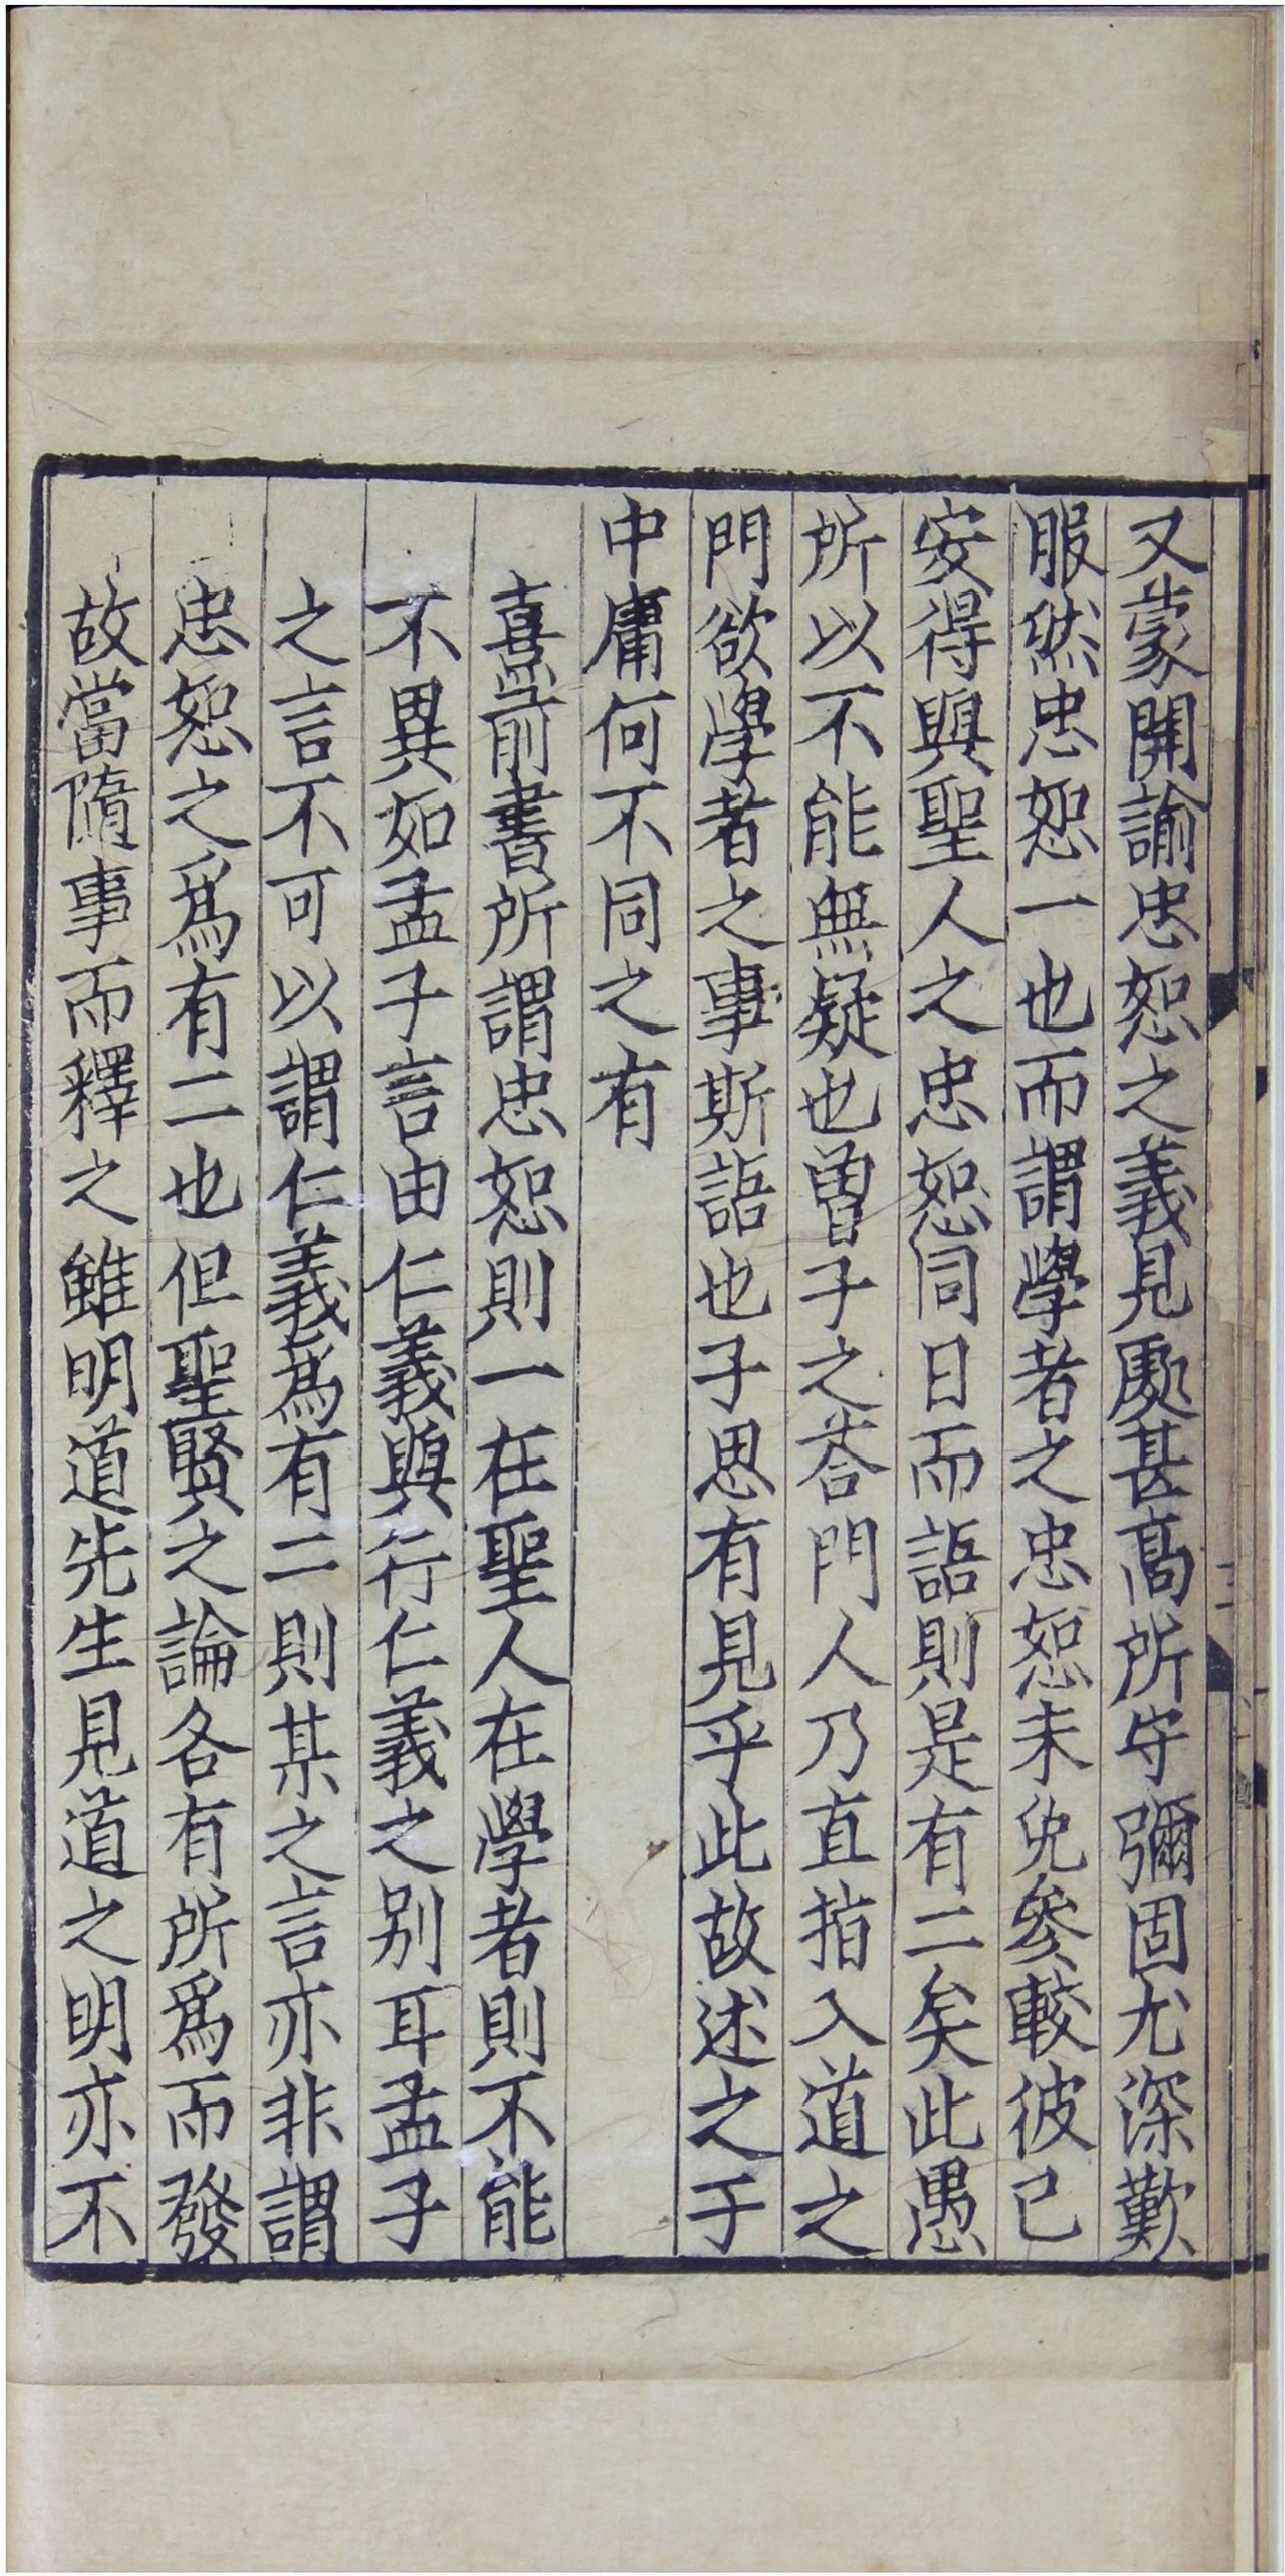 又蒙開諭忠恕之義見處甚高所守彌固尤深歎
服然忠恕一也而謂學者之忠恕未免參較彼己
安得與聖人之忠恕同日而語則是有二矣此愚
所以不能無疑也曾子之荅門人乃直指入道之
門欲學者之事斯語也子思有見乎此故述之于
中庸何不同之有
熹前書所謂忠恕則一在聖人在學者則不能
不異如孟子言由仁義與行仁義之别耳孟子
之言不可以謂仁義爲有二則某之言亦非謂
忠恕之爲有二也但聖賢之論各有所爲而發
故當隨事而釋之雖明道先生見道之明亦不